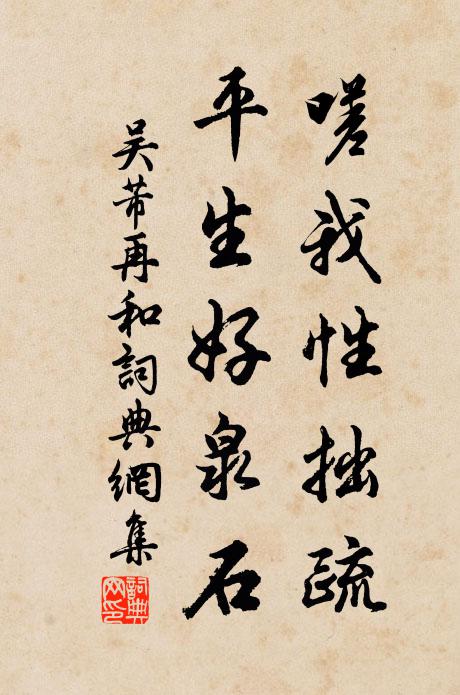 嗟我性拙疏
平生好泉石
吴芾再和詞典網集
詞典網印